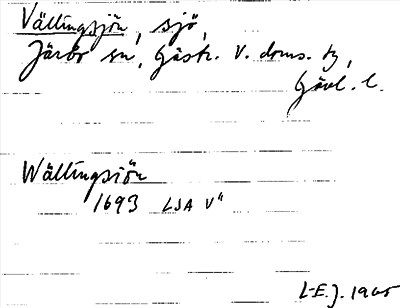 Vällingsjön, sjö,
Järbo sn, Gästr. V. doms. tg,
Gävl. l.
Wällingsiön
1693 LSA V"
L-E.J. 1965